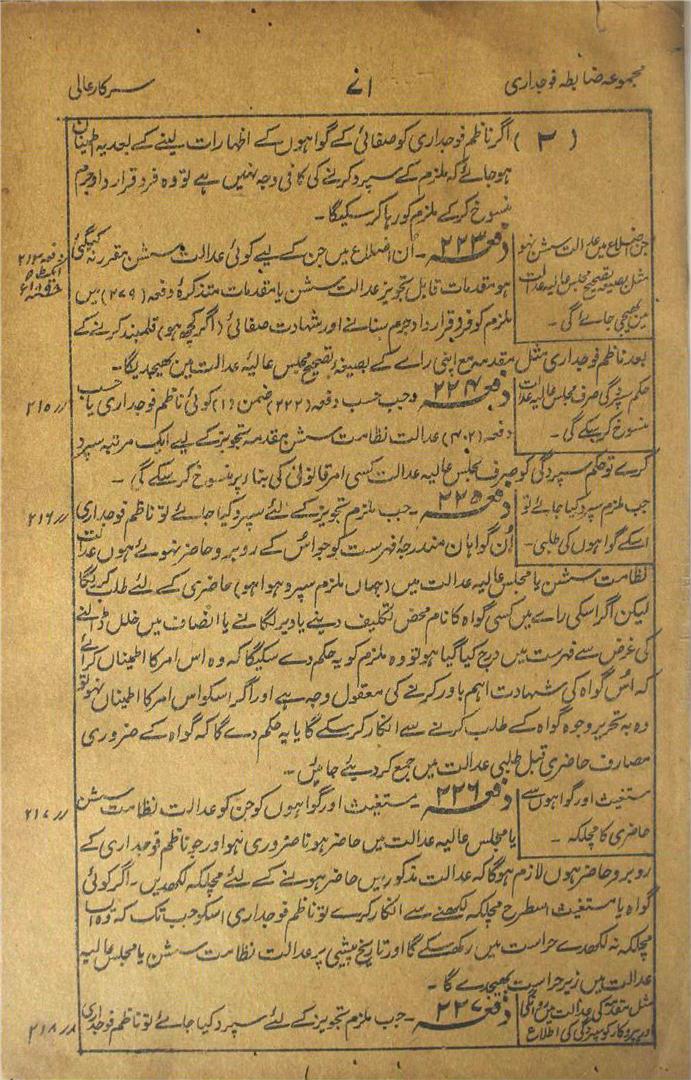 مجموعہ ضابطہ فوجداری
۷۱
سرکار عالی
(۲) اگر ناظم فوجداری کو صفائی کے گواہوں کے اظہارات لینے کے بعد یہ اطمینان
ہو جائے کہ ملزم کے سپرد کرنے کی کافی وجہ نہیں ہے تو وہ فرد قرار داد جرم
منسوخ کر کے ملزم کو رہا کر سکیگا۔
جن اضلاع میں عدالت سشن نہو
مثل بصیغہ تصحیح مجلس عالیہ عدالت
میں بھیجی جائے گی۔
دفعہ ۲۲۳۔ اُن اضلاع میں جن کے لیے کوئی عدالت سشن مقرر نہ کیگئی
ہو مقدمات قابل تجویز عدالت سشن یا مقدمات متذکرۂ دفعہ (۲۷۹) میں
ملزم کو فرد قرار داد جرم سنانے اور شہادت صفائی (اگر کچھ ہو) قلمبند کرنے کے
بعد ناظم فوجداری مثل مقدمہ مع اپنی رائے کے بصیغۂ تصحیح مجلس عالیہ عدالت میں بھیجدیگا۔
دفعہ ۲۱۳
حکم سپردگی صرف مجلس عالیہ عدالت
منسوخ کر سکے گی۔
دفعہ ۲۲۴۔ جب حسب دفعہ (۲۲۲) ضمن (۱) کوئی ناظم فوجداری یا حسب
دفعہ (۴۰۲) عدالت نظامت سشن مقدمہ تجویز کے لیے ایک مرتبہ سپرد
کرے تو حکم سپردگی کو صرف مجلس عالیہ عدالت کسی امر قانونی کی بناء پر منسوخ کر سکے گی۔
〃 ۲۱۵
جب ملزم سپرد کیا جائے تو
اسکے گواہوں کی طلبی۔
دفعہ ۲۲۵۔ جب ملزم تجویز کے لئے سپرد کیا جائے تو ناظم فوجداری
اُن گواہان مندرجۂ فہرست کو جو اُس کے روبرو حاضر نہوئے ہوں عدالت
نظامت سشن یا مجلس عالیہ عدالت میں (جہاں ملزم سپرد ہوا ہو) حاضری کے لئے طلب کریگا
لیکن اگر اسکی رائے میں کسی گواہ کا نام محض تکلیف دینے یا دیر لگانے یا انصاف میں خلل ڈالنے
کی غرض سے فہرست میں درج کیا گیا ہو تو وہ ملزم کو یہ حکم دے سکیگا کہ وہ اس امر کا اطمینان کرائے
کہ اُس گواہ کی شہادت اہم باور کرنے کی معقول وجہ ہے اور اگر اسکو اس امر کا اطمینان نہو تو
وہ بہ تحریر وجوہ گواہ کے طلب کرنے سے انکار کر سکے گا یا یہ حکم دے گا کہ گواہ کے ضروری
مصارف حاضری قبل طلبی عدالت میں جمع کر دیئے جائیں۔
〃 ۲۱۶
مستغیث اور گواہوں سے
حاضری کا مچلکہ۔
دفعہ ۲۲۶۔ مستغیث اور گواہوں کو جن کو عدالت نظامت سشن
یا مجلس عالیہ عدالت میں حاضر ہونا ضروری ہو اور جو ناظم فوجداری کے
روبرو حاضر ہوں لازم ہوگا کہ عدالت مذکور میں حاضر ہونے کے لئے مچلکہ لکھدیں۔ اگر کوئی
گواہ یا مستغیث اسطرح مچلکہ لکھنے سے انکار کرے تو ناظم فوجداری اسکو جب تک کہ وہ
مچلکہ نہ لکھدے حراست میں رکھ سکے گا اور تاریخ پیشی پر عدالت نظامت سشن یا مجلس عالیہ
عدالت میں زیر حراست بھیجدے گا۔
〃 ۲۱۷
مثل مقدمہ کی عدالت میں روانگی
اور پیروکار کو سپردگی کی اطلاع
دفعہ ۲۲۷۔ جب ملزم تجویز کے لئے سپرد کیا جائے تو ناظم فوجداری
〃 ۲۱۸